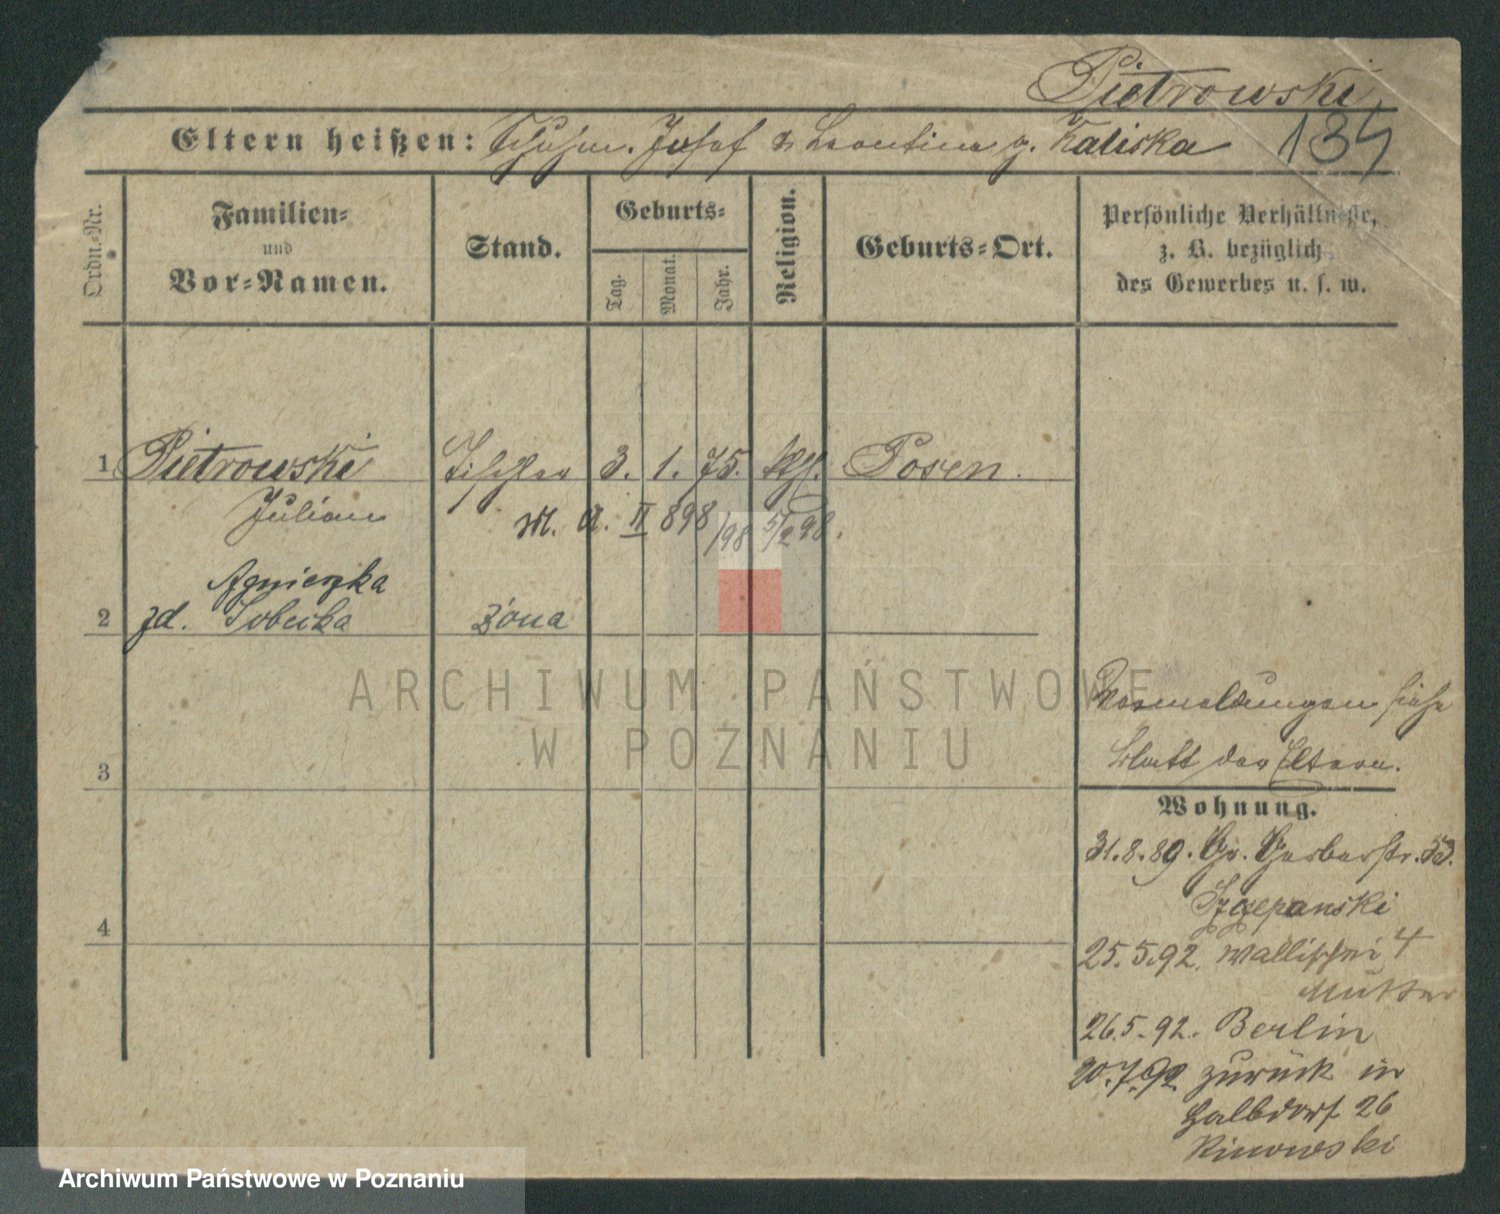 Pietrowski
Eltern heißen: Schuhm. Josef & Leontine g. Kaliska 134
Ordn.-Nr.
Familien-
und
Vor-Namen.
Stand.
Geburts-
Tag.
Monat.
Jahr.
Religion.
Geburts-Ort.
Persönliche Verhältnisse,
z. B. bezüglich
des Gewerbes u. s. w.
1 Pietrowski Tischler 3. 1. 75. kth. Posen.
Julian
M. A. II 898 /98 5/2 98.
Agnieszka
2 zd. Sobecka żona
3
4
Vormeldungen siehe
Blatt der Eltern.
Wohnung.
31.8.89. Gr. Gerberstr. 53.
Szczepanski
25.5.92. Wallischei 4
Mutter
26.5.92. Berlin
20.7.92 zurück in
Halbdorf 26
ARCHIWUM PAŃSTWOWE
W POZNANIU
Archiwum Państwowe w Poznaniu